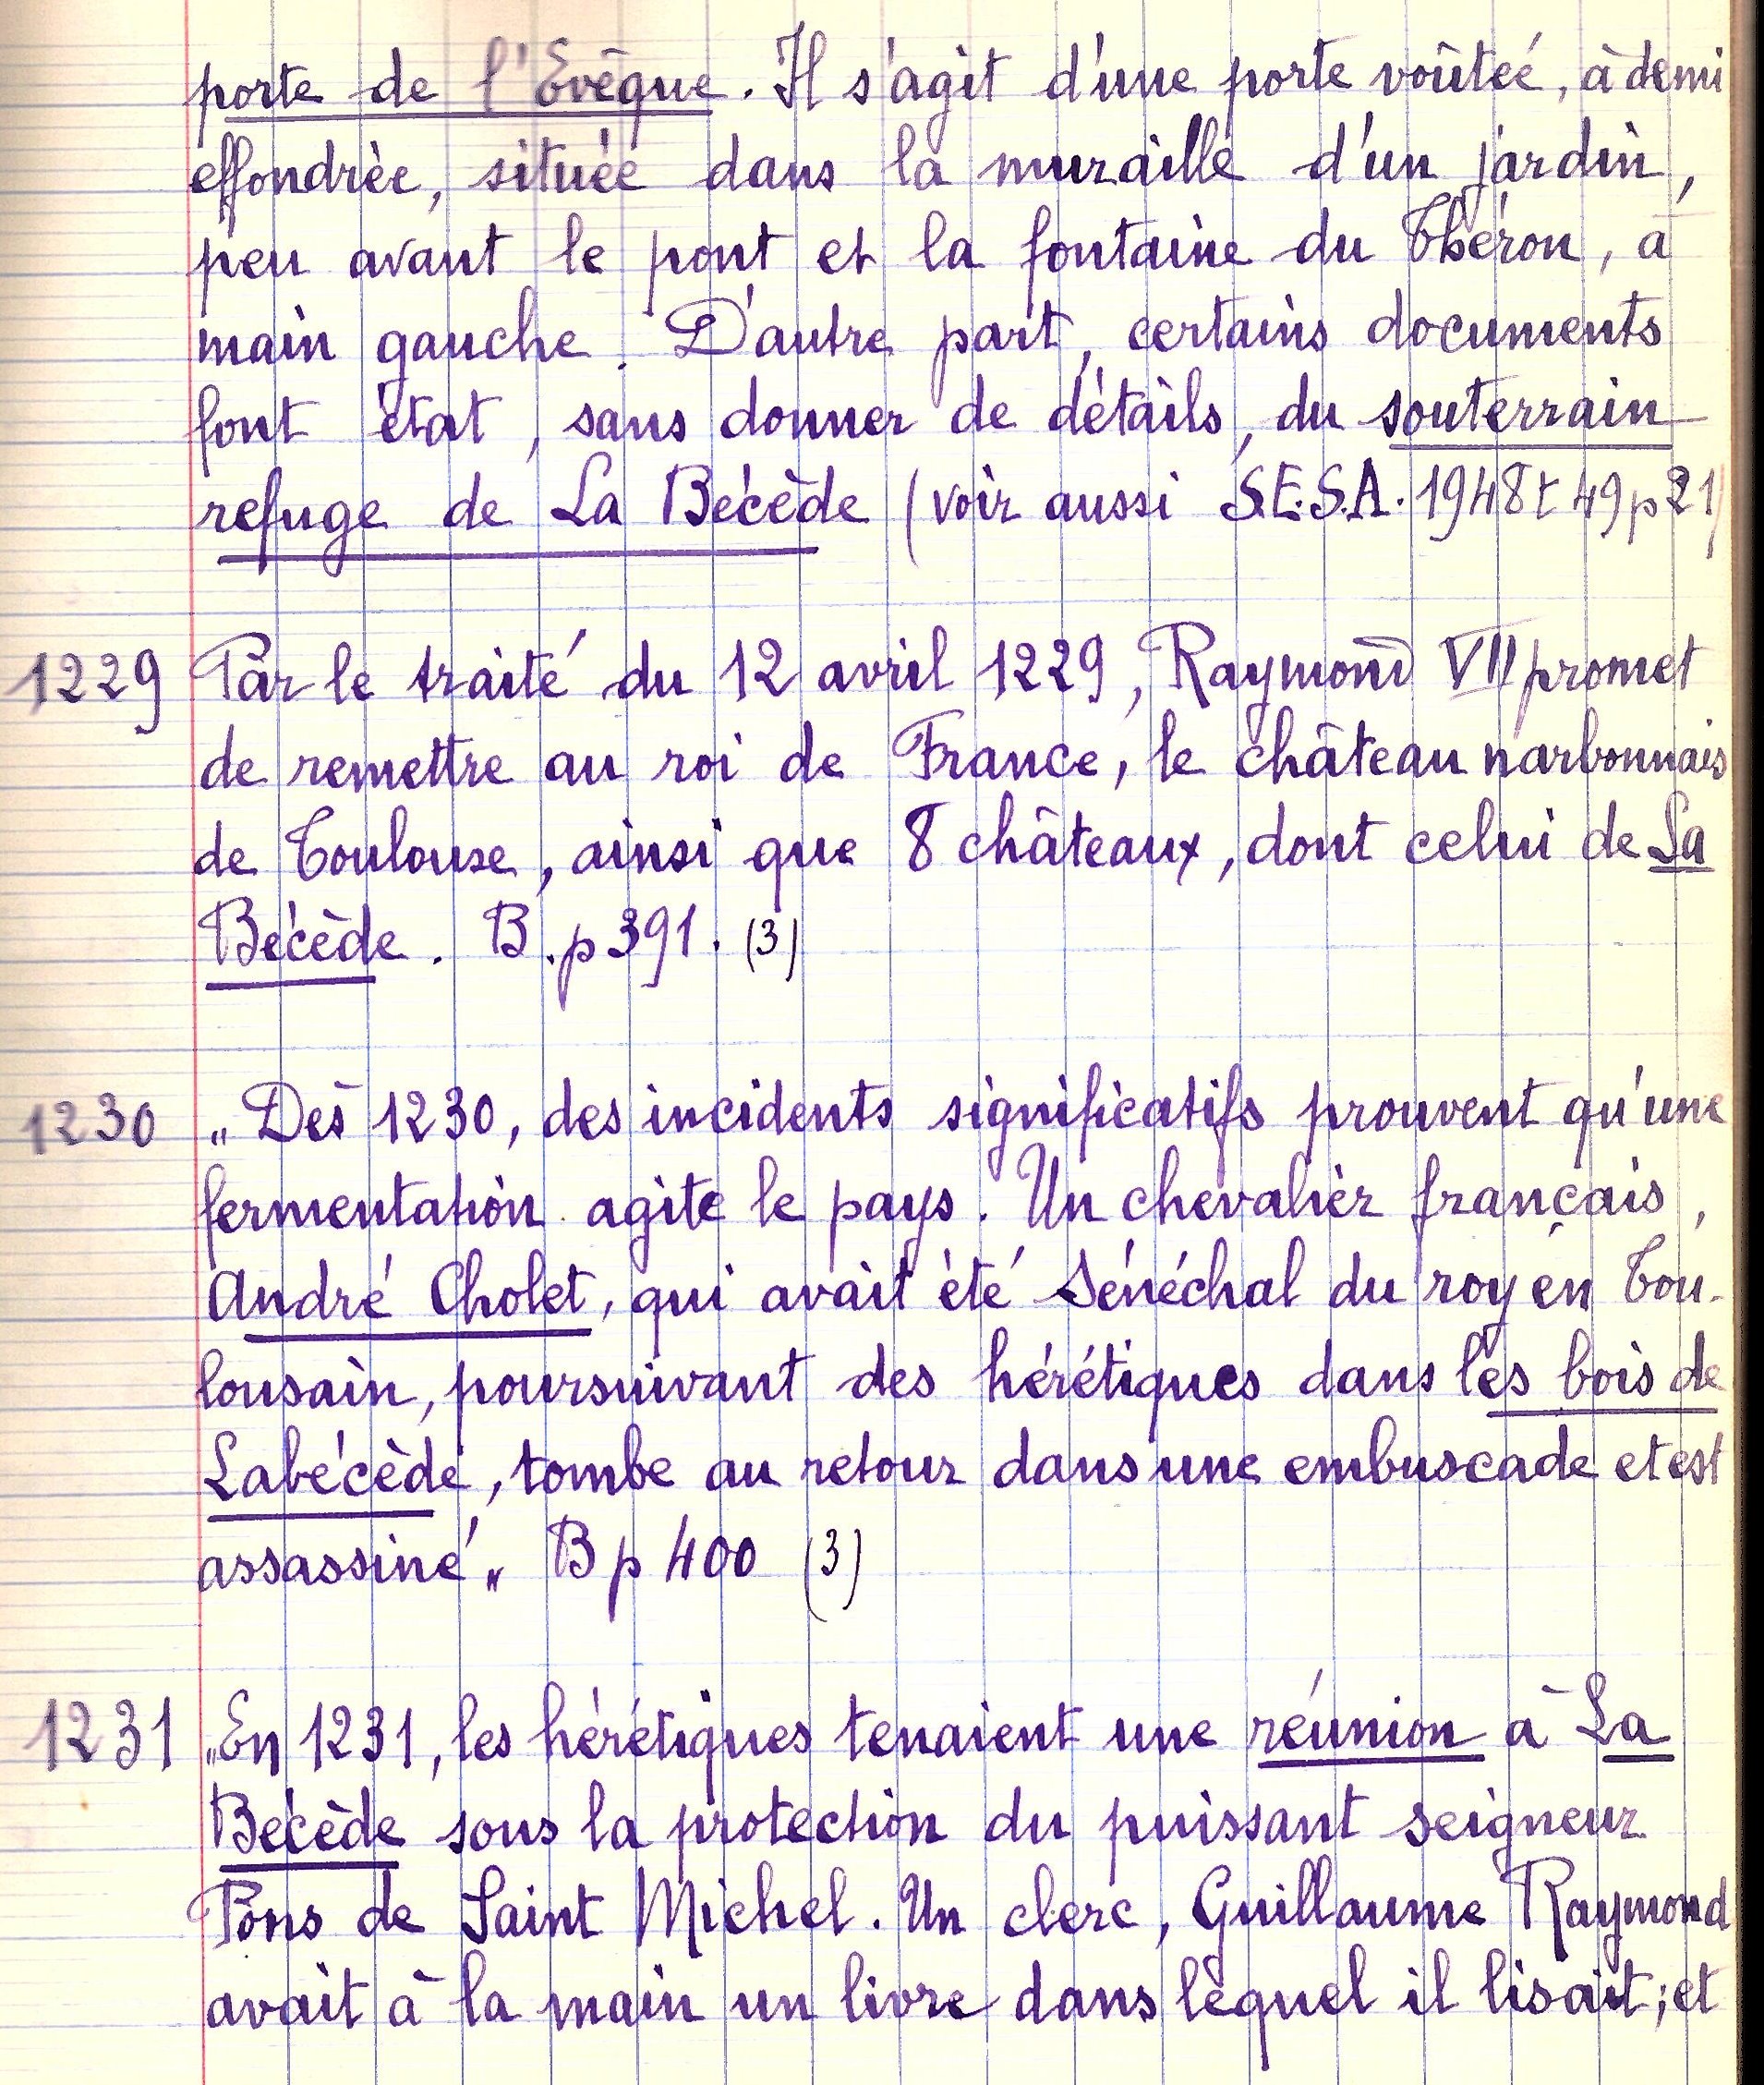 porte de l'Evêque. Il s'agit d'une porte voûtée, à demi
effondrée, située dans la muraille d'un jardin,
peu avant le pont et la fontaine du Théron, à
main gauche. D'autre part, certains documents
font état, sans donner de détails, du souterrain
refuge de La Bécède (voir aussi S.E.S.A. 1948 t 49 p 21)
1229 Par le traité du 12 avril 1229, Raymond VII promet
de remettre au roi de France, le château narbonnais
de Toulouse, ainsi que 8 châteaux, dont celui de La
Bécède. B. p 391. (3)
1230 „Dès 1230, des incidents significatifs prouvent qu'une
fermentation agite le pays. Un chevalier français,
André Cholet, qui avait été Sénéchal du roy en Tou-
lousain, poursuivant des hérétiques dans les bois de
Labécède, tombe au retour dans une embuscade et est
assassiné„ B p 400 (3)
1231 „En 1231, les hérétiques tenaient une réunion à La
Bécède sous la protection du puissant seigneur
Pons de Saint Michel. Un clerc, Guillaume Raymond
avait à la main un livre dans lequel il lisait; et